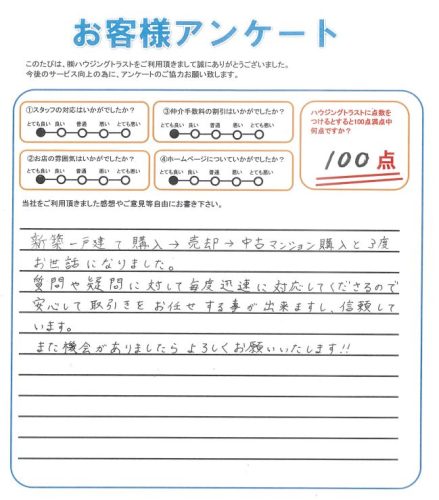 お客様アンケート
このたびは、㈱ハウジングトラストをご利用頂きまして誠にありがとうございました。
今後のサービス向上の為に、アンケートのご協力お願い致します。
①スタッフの対応はいかがでしたか？
とても良い 良い 普通 悪い とても悪い
③仲介手数料の割引はいかがでしたか？
とても良い 良い 普通 悪い とても悪い
ハウジングトラストに点数を
つけるとすると100点満点中
何点ですか？
100 点
②お店の雰囲気はいかがでしたか？
とても良い 良い 普通 悪い とても悪い
④ホームページについていかがでしたか？
とても良い 良い 普通 悪い とても悪い
当社をご利用頂きました感想やご意見等自由にお書き下さい。
新築一戸建て購入→売却→中古マンション購入と3度
お世話になりました。
質問や疑問に対して毎度迅速に対応してくださるので
安心して取引きをお任せする事が出来ますし、信頼して
います。
また機会がありましたらよろしくお願いいたします!!